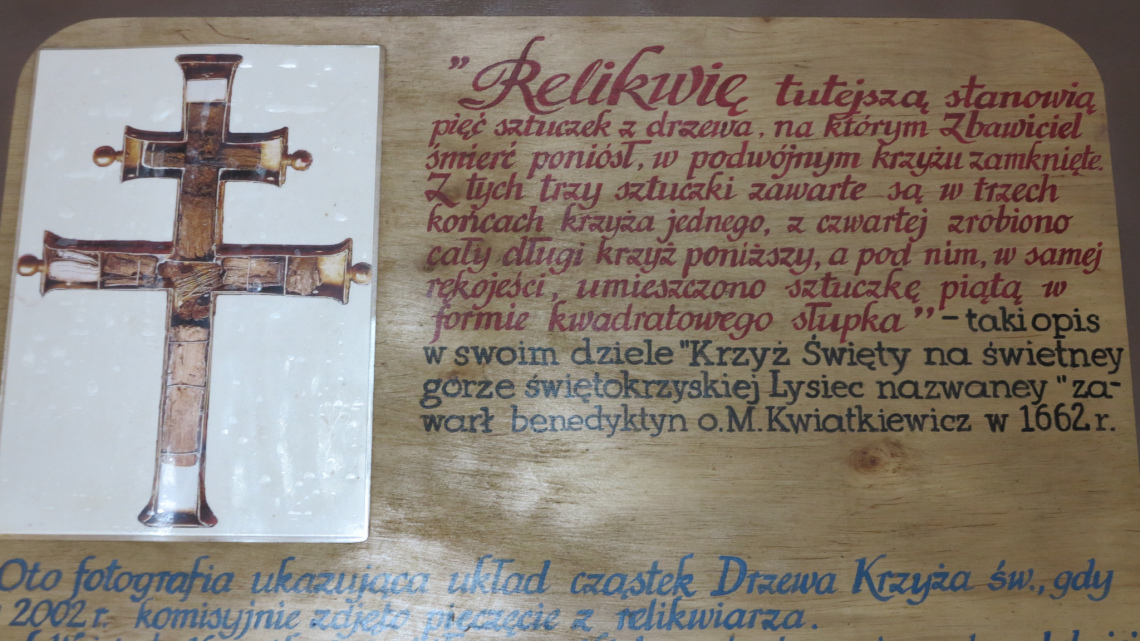 "Relikwię tutejszą stanowią
pięć sztuczek z drzewa, na którym Zbawiciel
śmierć poniósł, w podwójnym krzyżu zamknięte.
Z tych trzy sztuczki zawarte są w trzech
końcach krzyża jednego, z czwartej zrobiono
cały długi krzyż poniższy, a pod nim, w samej
rękojeści, umieszczono sztuczkę piątą w
formie kwadratowego słupka" - taki opis
w swoim dziele "Krzyż Święty na świetney
górze świętokrzyskiej Łysiec nazwaney" za-
warł benedyktyn o. M. Kwiatkiewicz w 1662 r.
Oto fotografia ukazująca układ cząstek Drzewa Krzyża św., gdy
2002 r. komisyjnie zdjęto pieczęcie z relikwiarza.